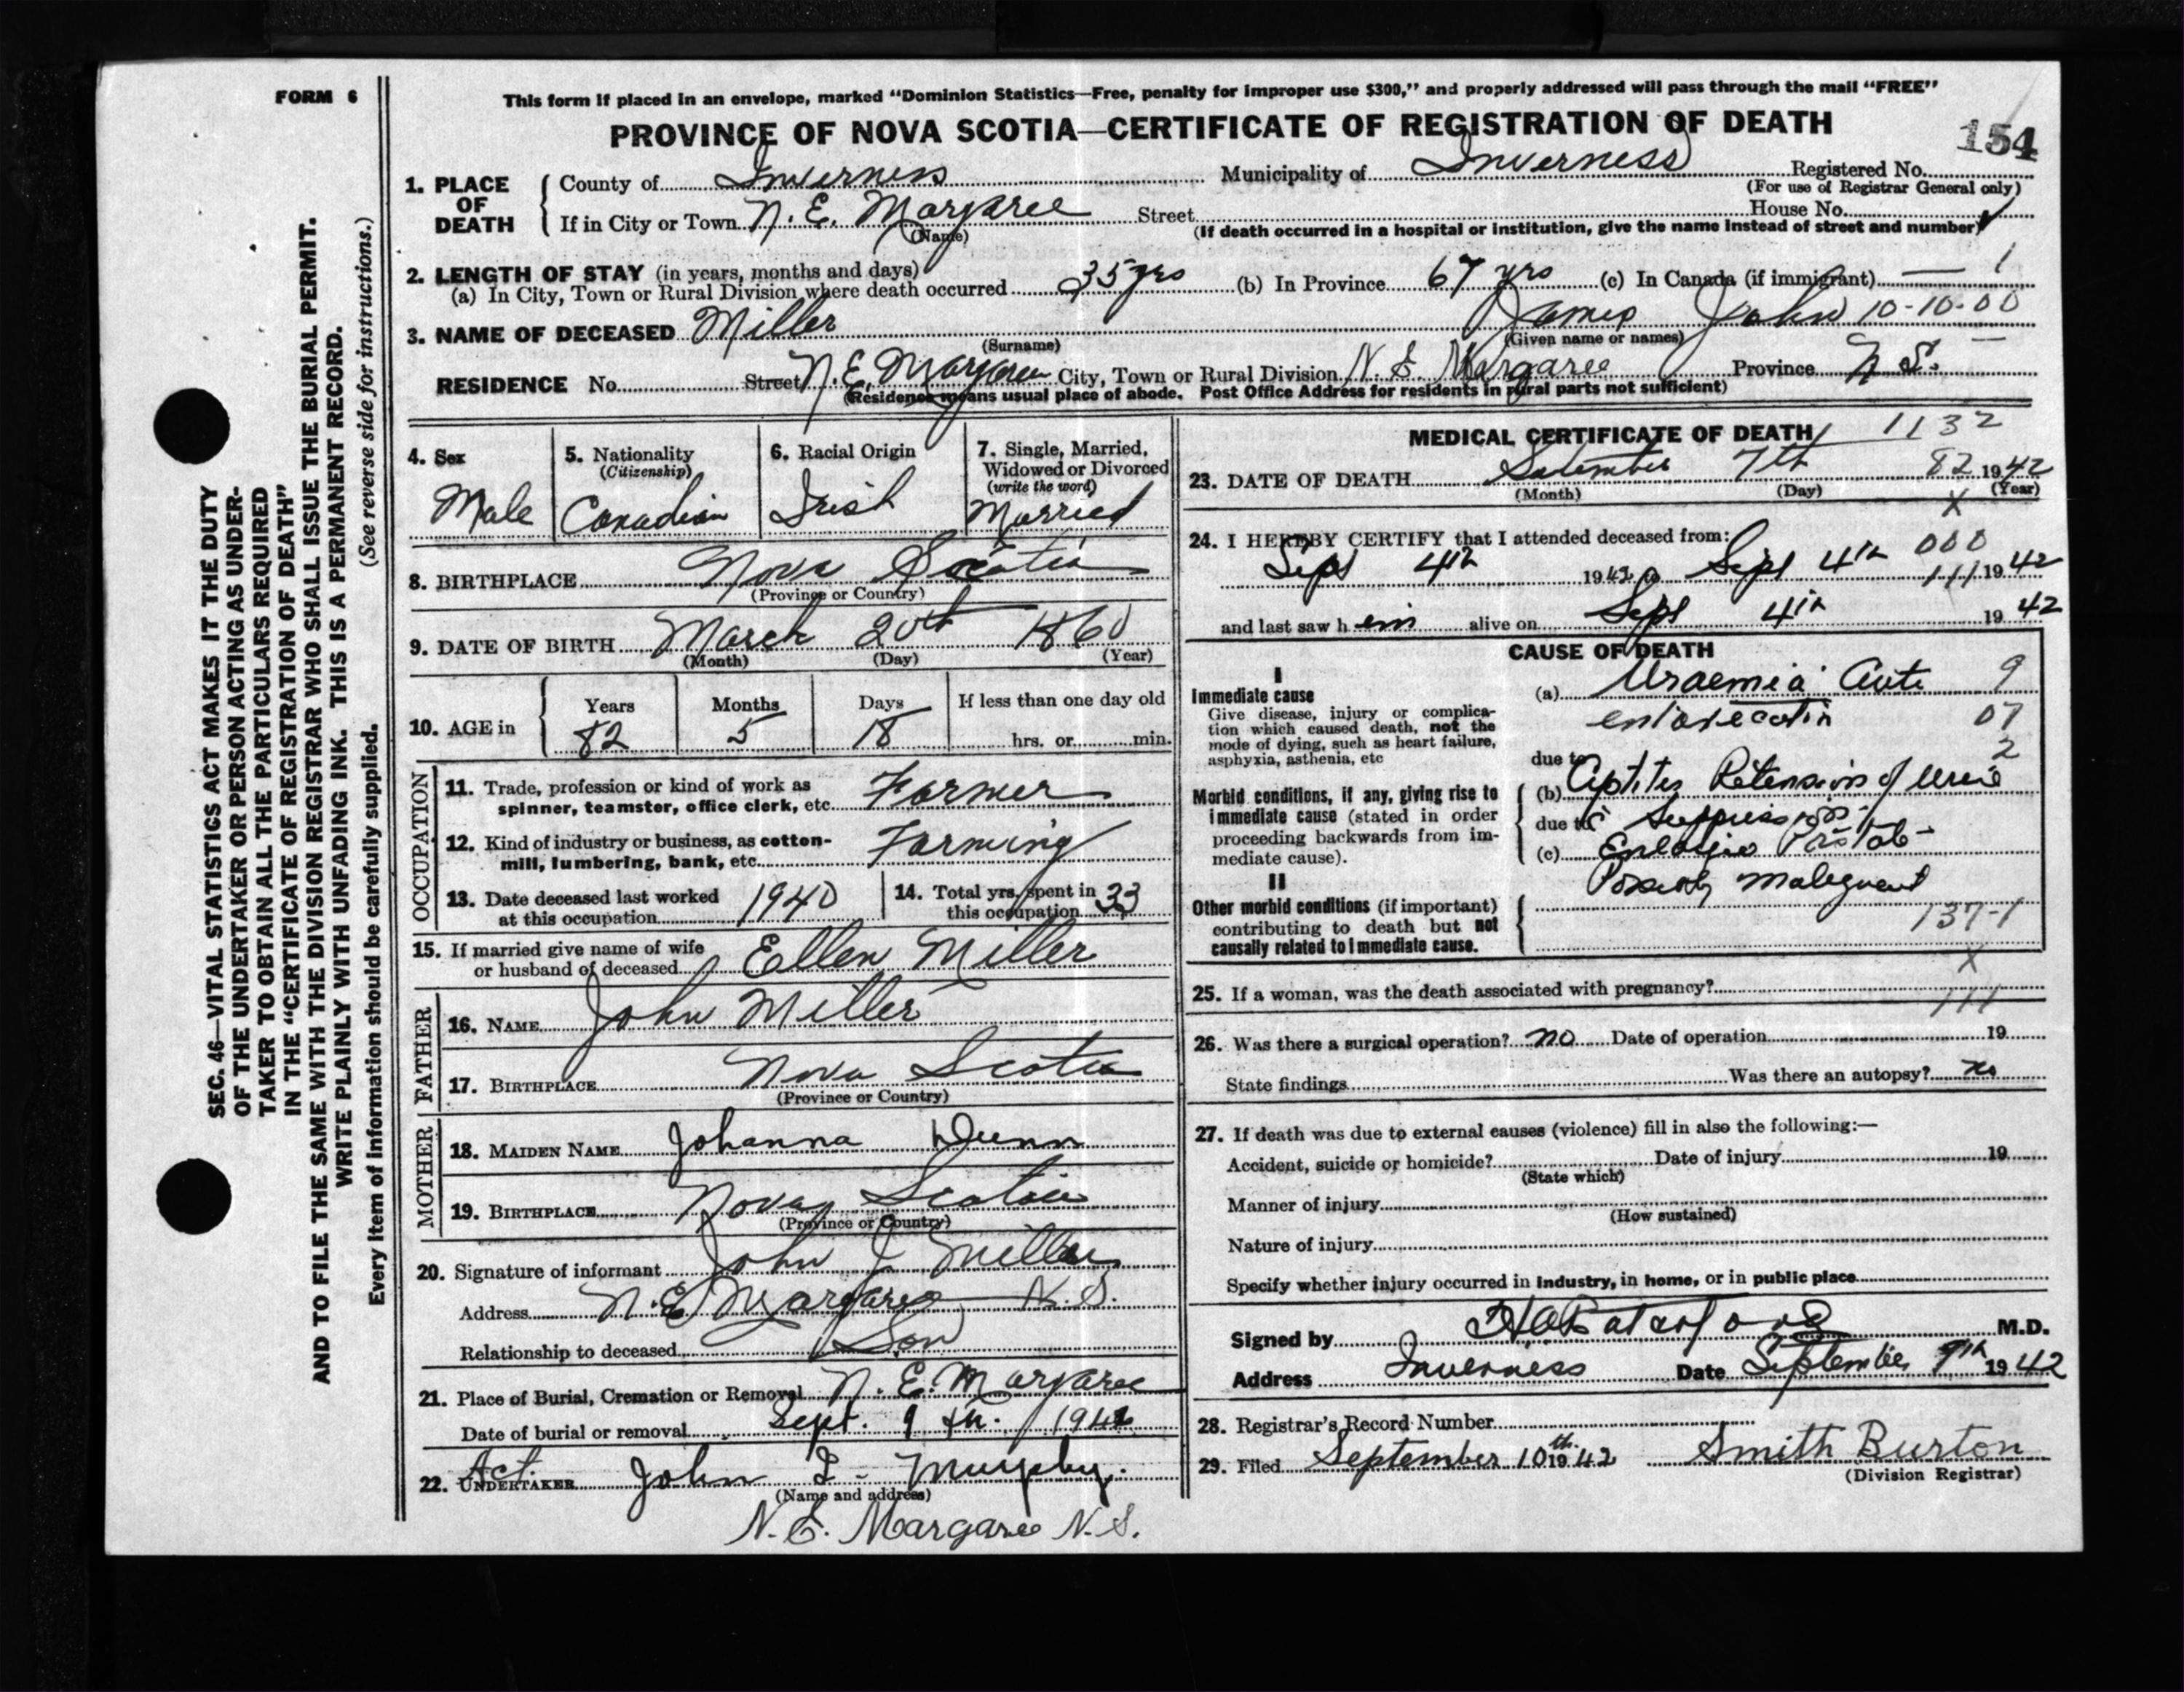 FORM 6
This form if placed in an envelope, marked “Dominion Statistics—Free, penalty for improper use $300,” and properly addressed will pass through the mail “FREE”
PROVINCE OF NOVA SCOTIA—CERTIFICATE OF REGISTRATION OF DEATH
154
1. PLACE OF DEATH
County of Inverness Municipality of Inverness Registered No.
(For use of Registrar General only)
If in City or Town N. E. Margaree Street House No.
(Name) (If death occurred in a hospital or institution, give the name instead of street and number)
2. LENGTH OF STAY (in years, months and days)
(a) In City, Town or Rural Division where death occurred 35 yrs (b) In Province 67 yrs (c) In Canada (if immigrant) — 1
3. NAME OF DECEASED Miller James John 10-10-00
(Surname) (Given name or names)
RESIDENCE No. Street N. E. Margaree City, Town or Rural Division N. E Margaree Province N. S.
(Residence means usual place of abode. Post Office Address for residents in rural parts not sufficient)
4. Sex
Male
5. Nationality
(Citizenship)
Canadian
6. Racial Origin
Irish
7. Single, Married,
Widowed or Divorced
(write the word)
Married
8. BIRTHPLACE Nova Scotia
(Province or Country)
9. DATE OF BIRTH March 20th 1860
(Month) (Day) (Year)
10. AGE in
Years Months Days If less than one day old
82 5 18 hrs. or min.
OCCUPATION
11. Trade, profession or kind of work as
spinner, teamster, office clerk, etc. Farmer
12. Kind of industry or business, as cotton-
mill, lumbering, bank, etc. Farming
13. Date deceased last worked
at this occupation 1940
14. Total yrs. spent in
this occupation 33
15. If married give name of wife
or husband of deceased Ellen Miller
FATHER
16. NAME John Miller
17. BIRTHPLACE Nova Scotia
(Province or Country)
MOTHER
18. MAIDEN NAME Johanna Dunn
19. BIRTHPLACE Nova Scotia
(Province or Country)
20. Signature of informant John J Miller
Address N. E Margaree N. S.
Relationship to deceased Son
21. Place of Burial, Cremation or Removal N. E. Margaree
Date of burial or removal Sept. 9 th. 1942
Act.
22. UNDERTAKER John Murphy.
(Name and address)
N. E. Margaree N. S.
MEDICAL CERTIFICATE OF DEATH 1132
23. DATE OF DEATH September 7th 82 1942
(Month) (Day) (Year)
X
24. I HEREBY CERTIFY that I attended deceased from: 000
Sept 4th 1942 to Sept 4th 111 1942
and last saw h im alive on Sept 4th 1942
CAUSE OF DEATH
I
Immediate cause
Give disease, injury or complica-
tion which caused death, not the
mode of dying, such as heart failure,
asphyxia, asthenia, etc
(a) Uraemia 9
07
2
due to
Morbid conditions, if any, giving rise to
immediate cause (stated in order
proceeding backwards from im-
mediate cause).
(b) Retension of Urine
due to
(c) Prostate
II
Possibly Malignent
Other morbid conditions (if important)
contributing to death but not
causally related to immediate cause.
137-1
X
25. If a woman, was the death associated with pregnancy?
111
26. Was there a surgical operation? no Date of operation 19
State findings Was there an autopsy? no
27. If death was due to external causes (violence) fill in also the following:—
Accident, suicide or homicide? Date of injury 19
(State which)
Manner of injury
(How sustained)
Nature of injury
Specify whether injury occurred in industry, in home, or in public place
Signed by M.D.
Address Inverness Date September 9th 1942
28. Registrar's Record Number
29. Filed September 10th 1942 Smith Burton
(Division Registrar)
SEC. 46—VITAL STATISTICS ACT MAKES IT THE DUTY
OF THE UNDERTAKER OR PERSON ACTING AS UNDER-
TAKER TO OBTAIN ALL THE PARTICULARS REQUIRED
IN THE “CERTIFICATE OF REGISTRATION OF DEATH”
AND TO FILE THE SAME WITH THE DIVISION REGISTRAR WHO SHALL ISSUE THE BURIAL PERMIT.
WRITE PLAINLY WITH UNFADING INK. THIS IS A PERMANENT RECORD.
Every item of information should be carefully supplied. (See reverse side for instructions.)